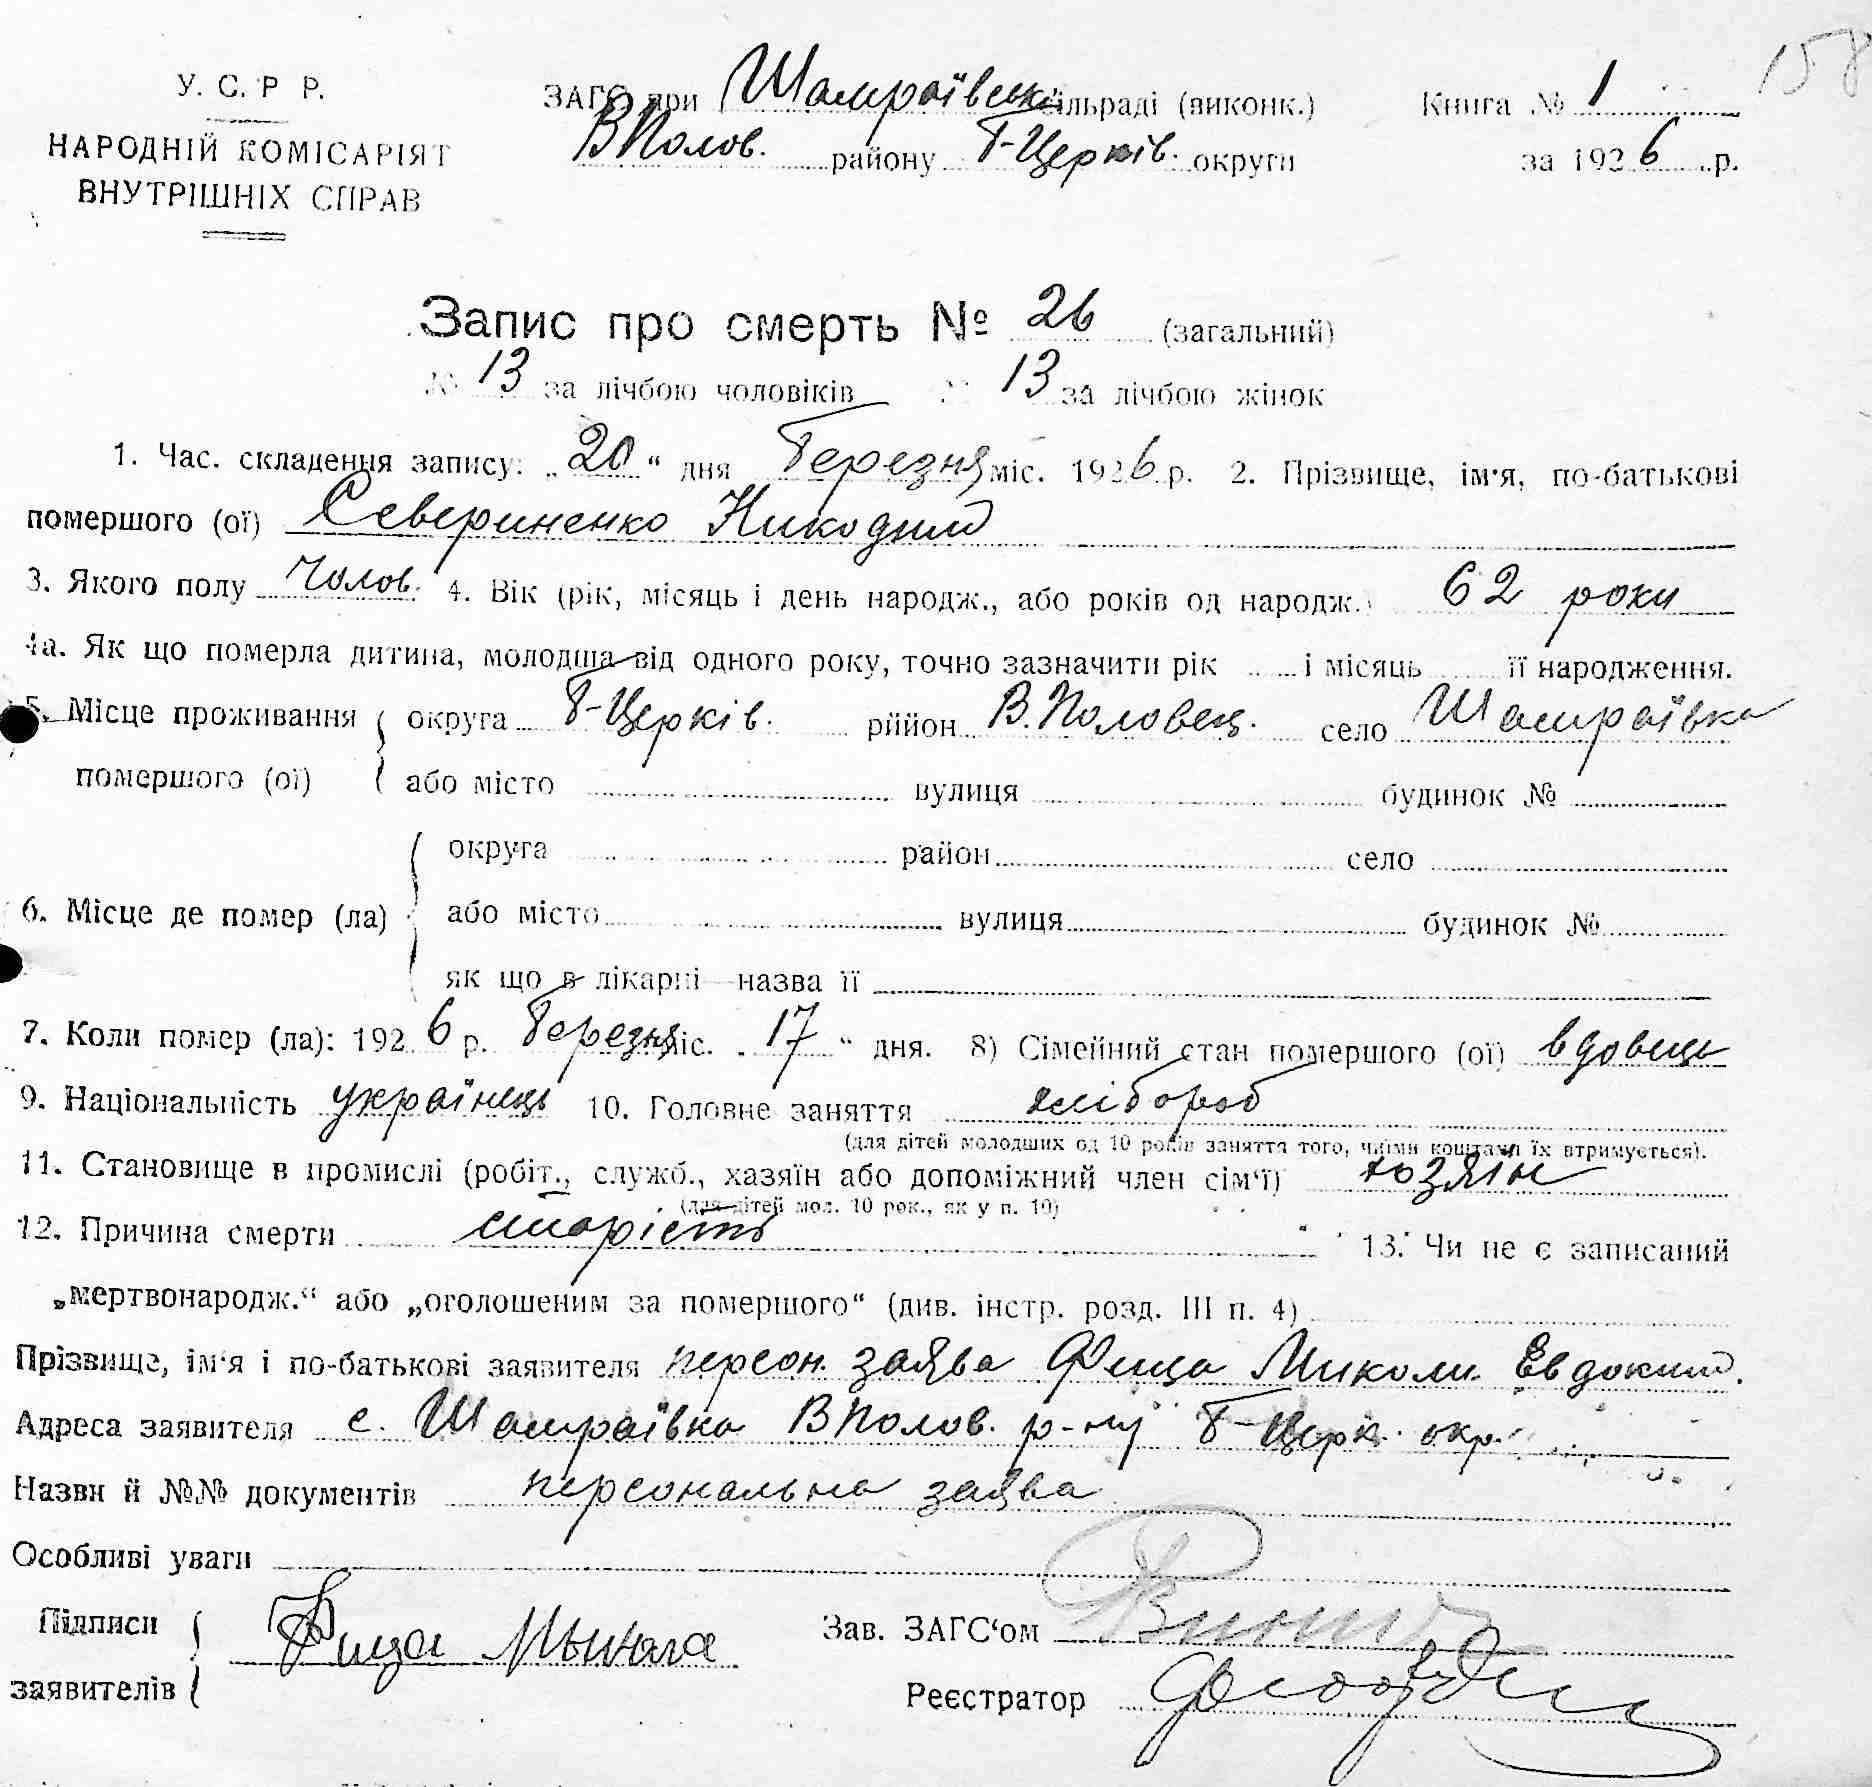 158
У. С. Р Р.
НАРОДНІЙ КОМІСАРІЯТ
ВНУТРІШНІХ СПРАВ
ЗАГС при Шамраївськ сільраді (виконк.)
ВПолов. району Б-Церків. округи
Книга № 1
за 1926 р.
Запис про смерть № 26 (загальний)
№ 13 за лічбою чоловіків № 13 за лічбою жінок
1. Час. складення запису: „20“ дня Березня міс. 1926 р. 2. Прізвище, ім'я, по-батькові
помершого (ої) Севериненко Никодим
3. Якого полу Чолов. 4. Вік (рік, місяць і день народж., або років од народж.) 62 роки
4а. Як що померла дитина, молодша від одного року, точно зазначити рік і місяць її народження.
5. Місце проживання округа Б-Церків. рййон В.Половец. село Шамраївка
помершого (ої) або місто вулиця будинок №
округа район село
6. Місце де помер (ла) або місто вулиця будинок №
як що в лікарні—назва її
7. Коли помер (ла): 1926 р. Березня міс. „17“ дня. 8) Сімейний стан помершого (ої) вдовець
9. Національність українець 10. Головне заняття хлібороб
(для дітей молодших од 10 років заняття того, чиїми коштами їх втримується).
11. Становище в промислі (робіт., служб., хазяїн або допоміжний член сім'ї) хозяїн
(для дітей мол. 10 рок., як у п. 10)
12. Причина смерти старість 13. Чи не є записаний
„мертвонародж.“ або „оголошеним за помершого“ (див. інстр. розд. III п. 4)
Прізвище, ім'я і по-батькові заявителя персон. заява Фица Миколи Евдоким.
Адреса заявителя с. Шамраївка ВПолов. р-ну Б-Церк. окр.
Назви й №№ документів персональна заява
Особливі уваги
Підписи
заявителів Фица Мыкола
Зав. ЗАГС'ом
Реєстратор